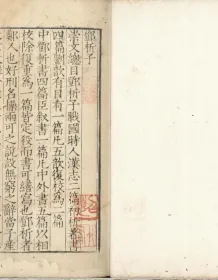 鄧析子
崇文總目鄧析子戰國時人漢志二篇初析著書
四篇劉歆有目有一篇凡五歆復校為二篇
中鄧析書四篇臣敘書一篇凡中外書五篇以相
校除復重為一篇皆定殺而書可繕寫也鄧析者
鄭人也好刑名操兩可之說設無窮之辭當子產